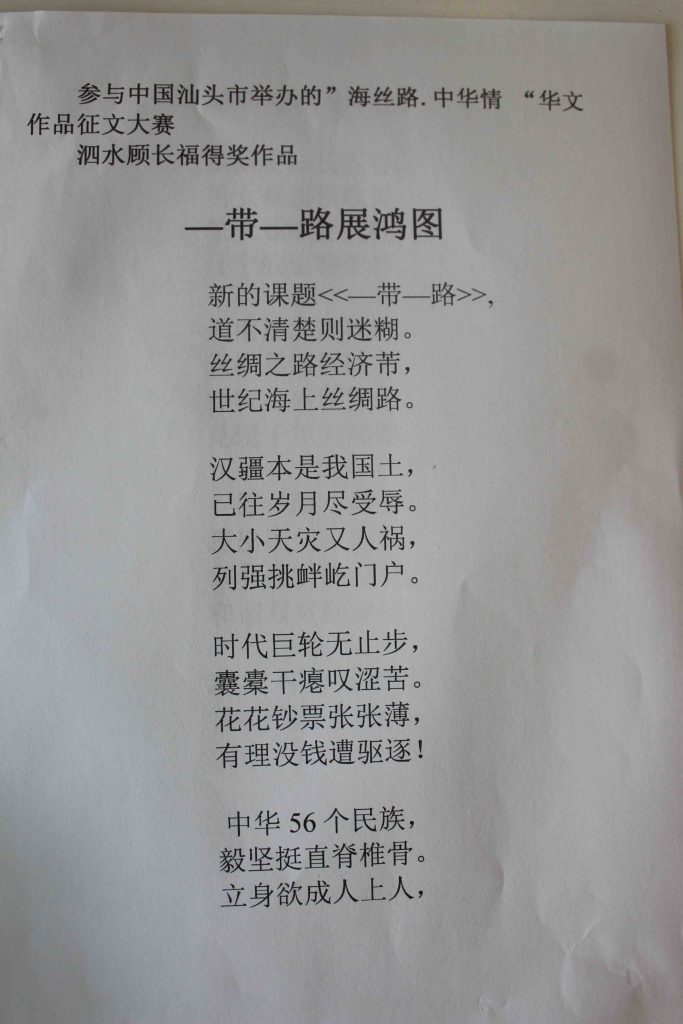 参与中国汕头市举办的”海丝路.中华情 “华文
作品征文大赛
泗水顾长福得奖作品
—带—路展鸿图
新的课题<<—带—路>>,
道不清楚则迷糊。
丝绸之路经济芇，
世纪海上丝绸路。
汉疆本是我国土，
已往岁月尽受辱。
大小天灾又人祸，
列强挑衅屹门户。
时代巨轮无止步，
囊橐干瘪叹涩苦。
花花钞票张张薄，
有理没钱遭驱逐！
中华 56 个民族，
毅坚挺直脊椎骨。
立身欲成人上人，